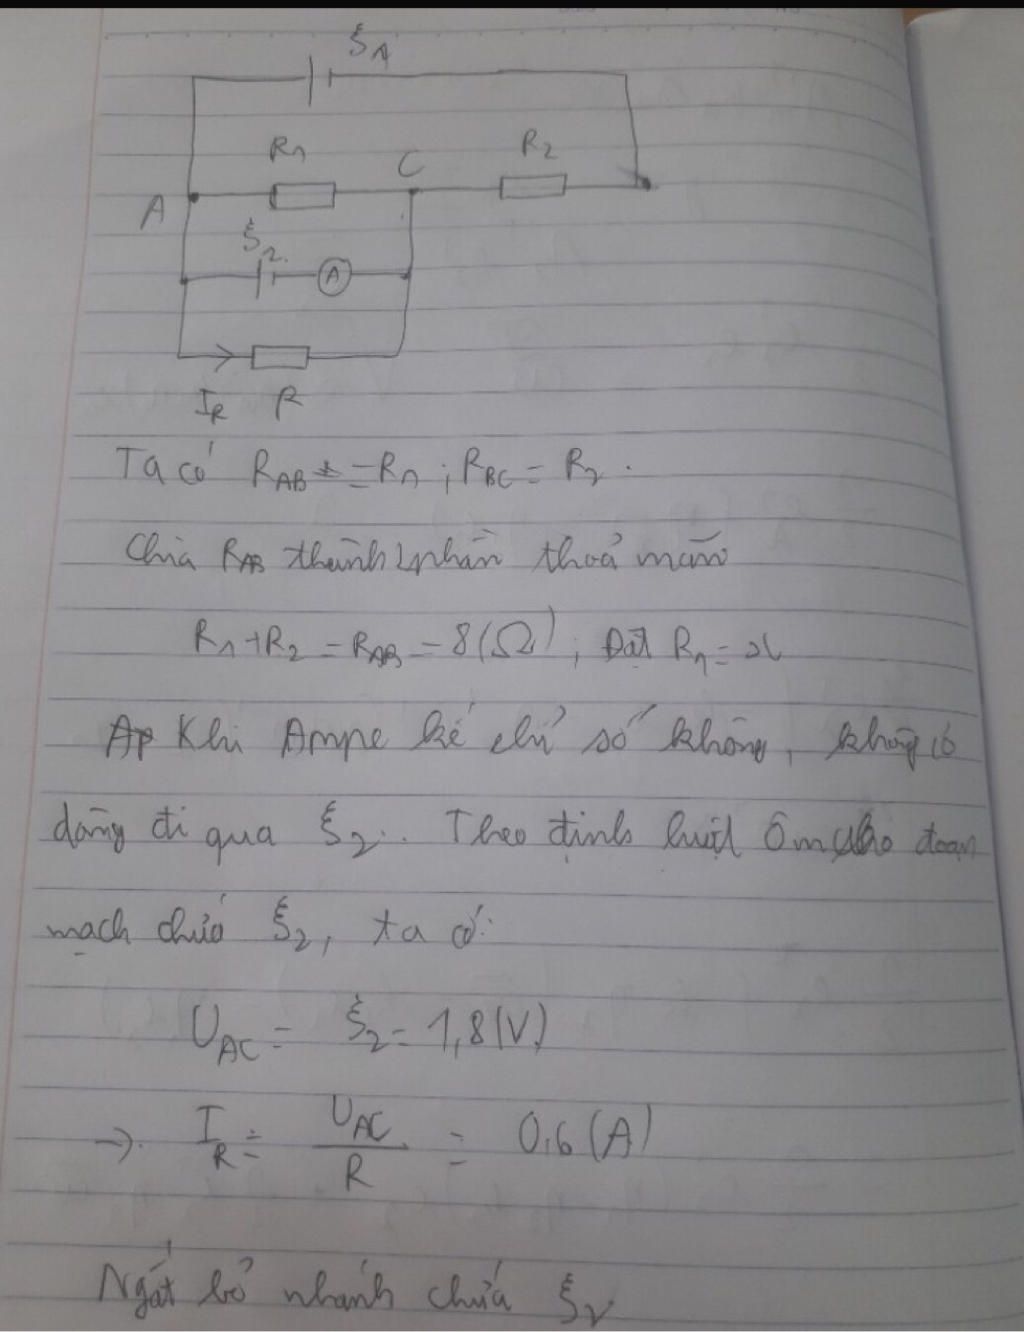 ξA
R1
C
R2
A
ξ2.
A
IR R
Ta có RAB = R1 ; RBC = R2 .
Chia RAB thành 2 phần thoả mãn
R1 + R2 = RAB = 8(Ω) ; Đặt R1 = x
Khi Ampe kế chỉ số không, không có
dòng đi qua ξ2. Theo định luật Ôm cho đoạn
mạch chứa ξ2, ta có:
UAC = ξ2 = 1,8(V)
→ IR = UAC / R = 0,6(A)
Ngắt bỏ nhánh chứa ξ2